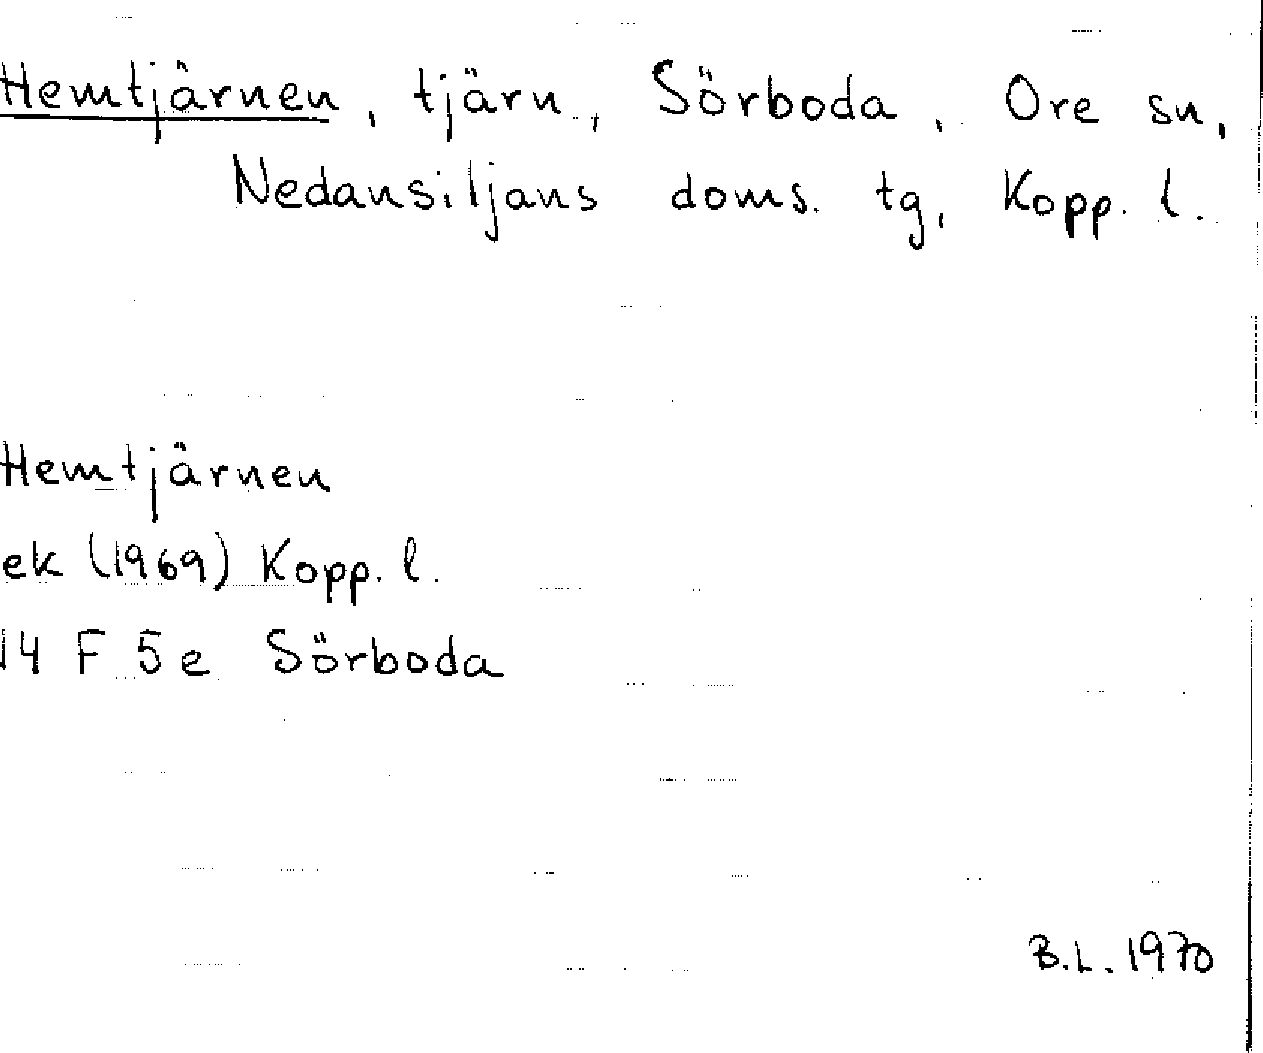 Hemtjärnen, tjärn, Sörboda, Ore sn,
Nedansiljans doms. tg, Kopp. l.
Hemtjärnen
ek (1969) Kopp. l.
14 F 5 e Sörboda
B.L. 1970